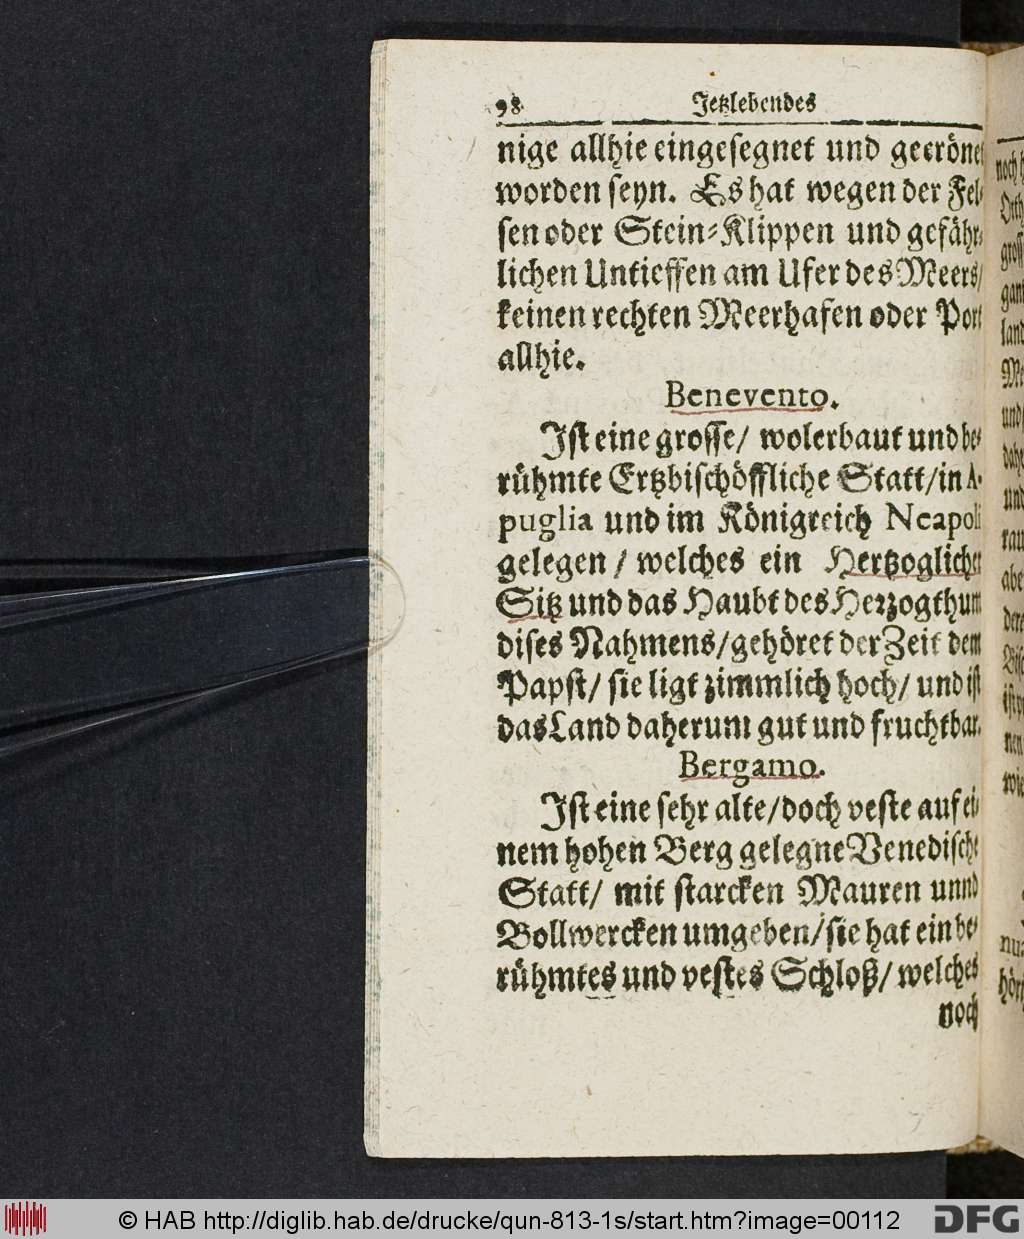 98 Jetzlebendes
nige allhie eingesegnet und gecrönet
worden seyn. Es hat wegen der Fel-
sen oder Stein-Klippen und gefähr-
lichen Untieffen am Ufer des Meers/
keinen rechten Meerhafen oder Port
allhie.
Benevento.
Ist eine grosse/ wolerbaut und be-
rühmte Ertzbischöffliche Statt/in A-
puglia und im Königreich Neapoli
gelegen / welches ein Hertzoglicher
Sitz und das Haubt des Herzogthum
dises Nahmens/gehöret der Zeit dem
Papst/ sie ligt zimmlich hoch/ und ist
das Land daherum gut und fruchtbar.
Bergamo.
Ist eine sehr alte/doch veste auf ei-
nem hohen Berg gelegne Venedische
Statt/ mit starcken Mauren unnd
Bollwercken umgeben/sie hat ein be-
rühmtes und vestes Schloß/ welches
noch
© HAB http://diglib.hab.de/drucke/qun-813-1s/start.htm?image=00112
DFG